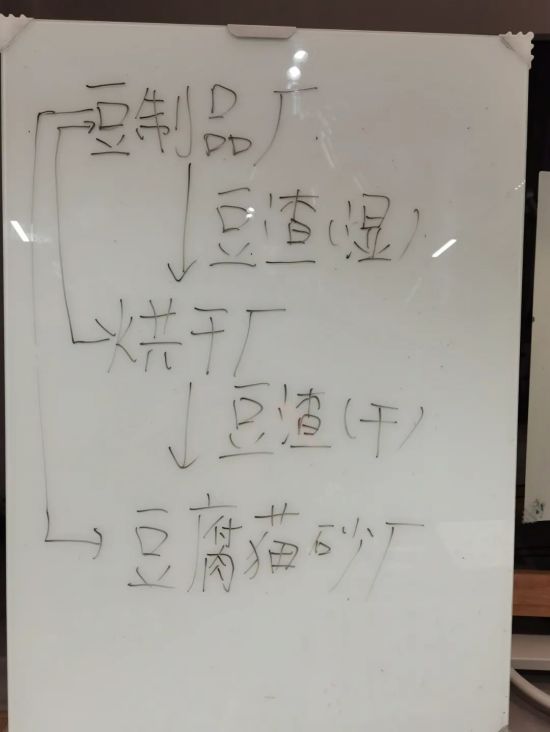 豆制品厂
豆渣(湿)
烘干厂
豆渣(干)
豆腐猫砂厂